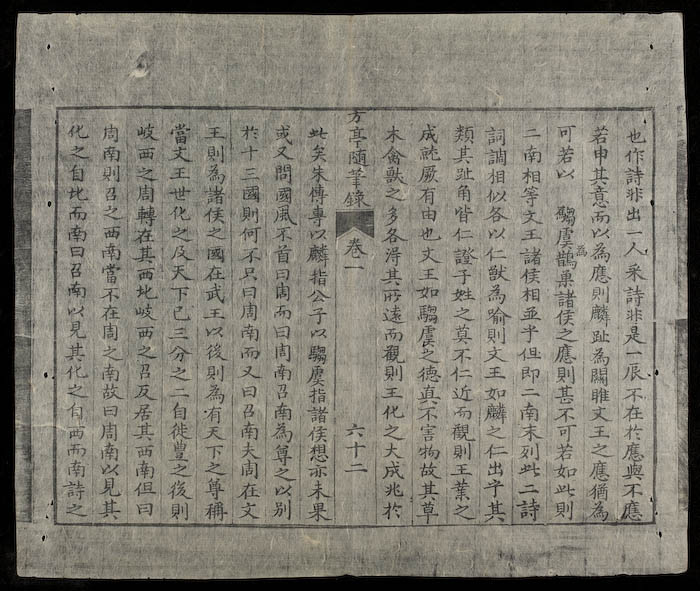 也作詩非出一人采詩非是一辰不在於應與不應
若申其意而以為應則麟趾為關雎文王之應猶為
可若以騶虞為鵲巢諸侯之應則甚不可若如此則
二南相等文王諸侯相並乎但即二南末列此二詩
詞調相似各以仁獸為喻則文王如麟之仁出乎其
類其趾角皆仁證子姓之莫不仁近而觀則王業之
成誠厥有由也文王如騶虞之德真不害物故其草
木禽獸之多各得其所遠而觀則王化之大成兆於
方亭隨筆錄 卷一 六十二
此矣朱傳專以麟指公子以騶虞指諸侯想亦未果
或又問國風不首曰周而曰周南召南為尊之以別
於十三國則何不只曰周南而又曰召南夫周在文
王則為諸侯之國在武王以後則為有天下之尊稱
當文王世化之及天下已三分之二自徙豐之後則
岐西之周轉在其西北岐西之召反居其西南但曰
周南則召之西南當不在周之南故曰周南以見其
化之自北而南曰召南以見其化之自西而南詩之